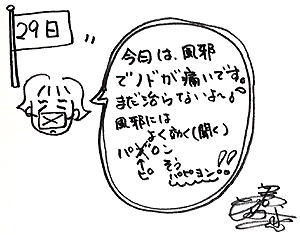 29日
今日は、風邪
でノドが痛いです。
まだ治らないよ〜♪
風邪には
よく効く(聞く)
パブロン
↑ そう
ピ パピヨン!!